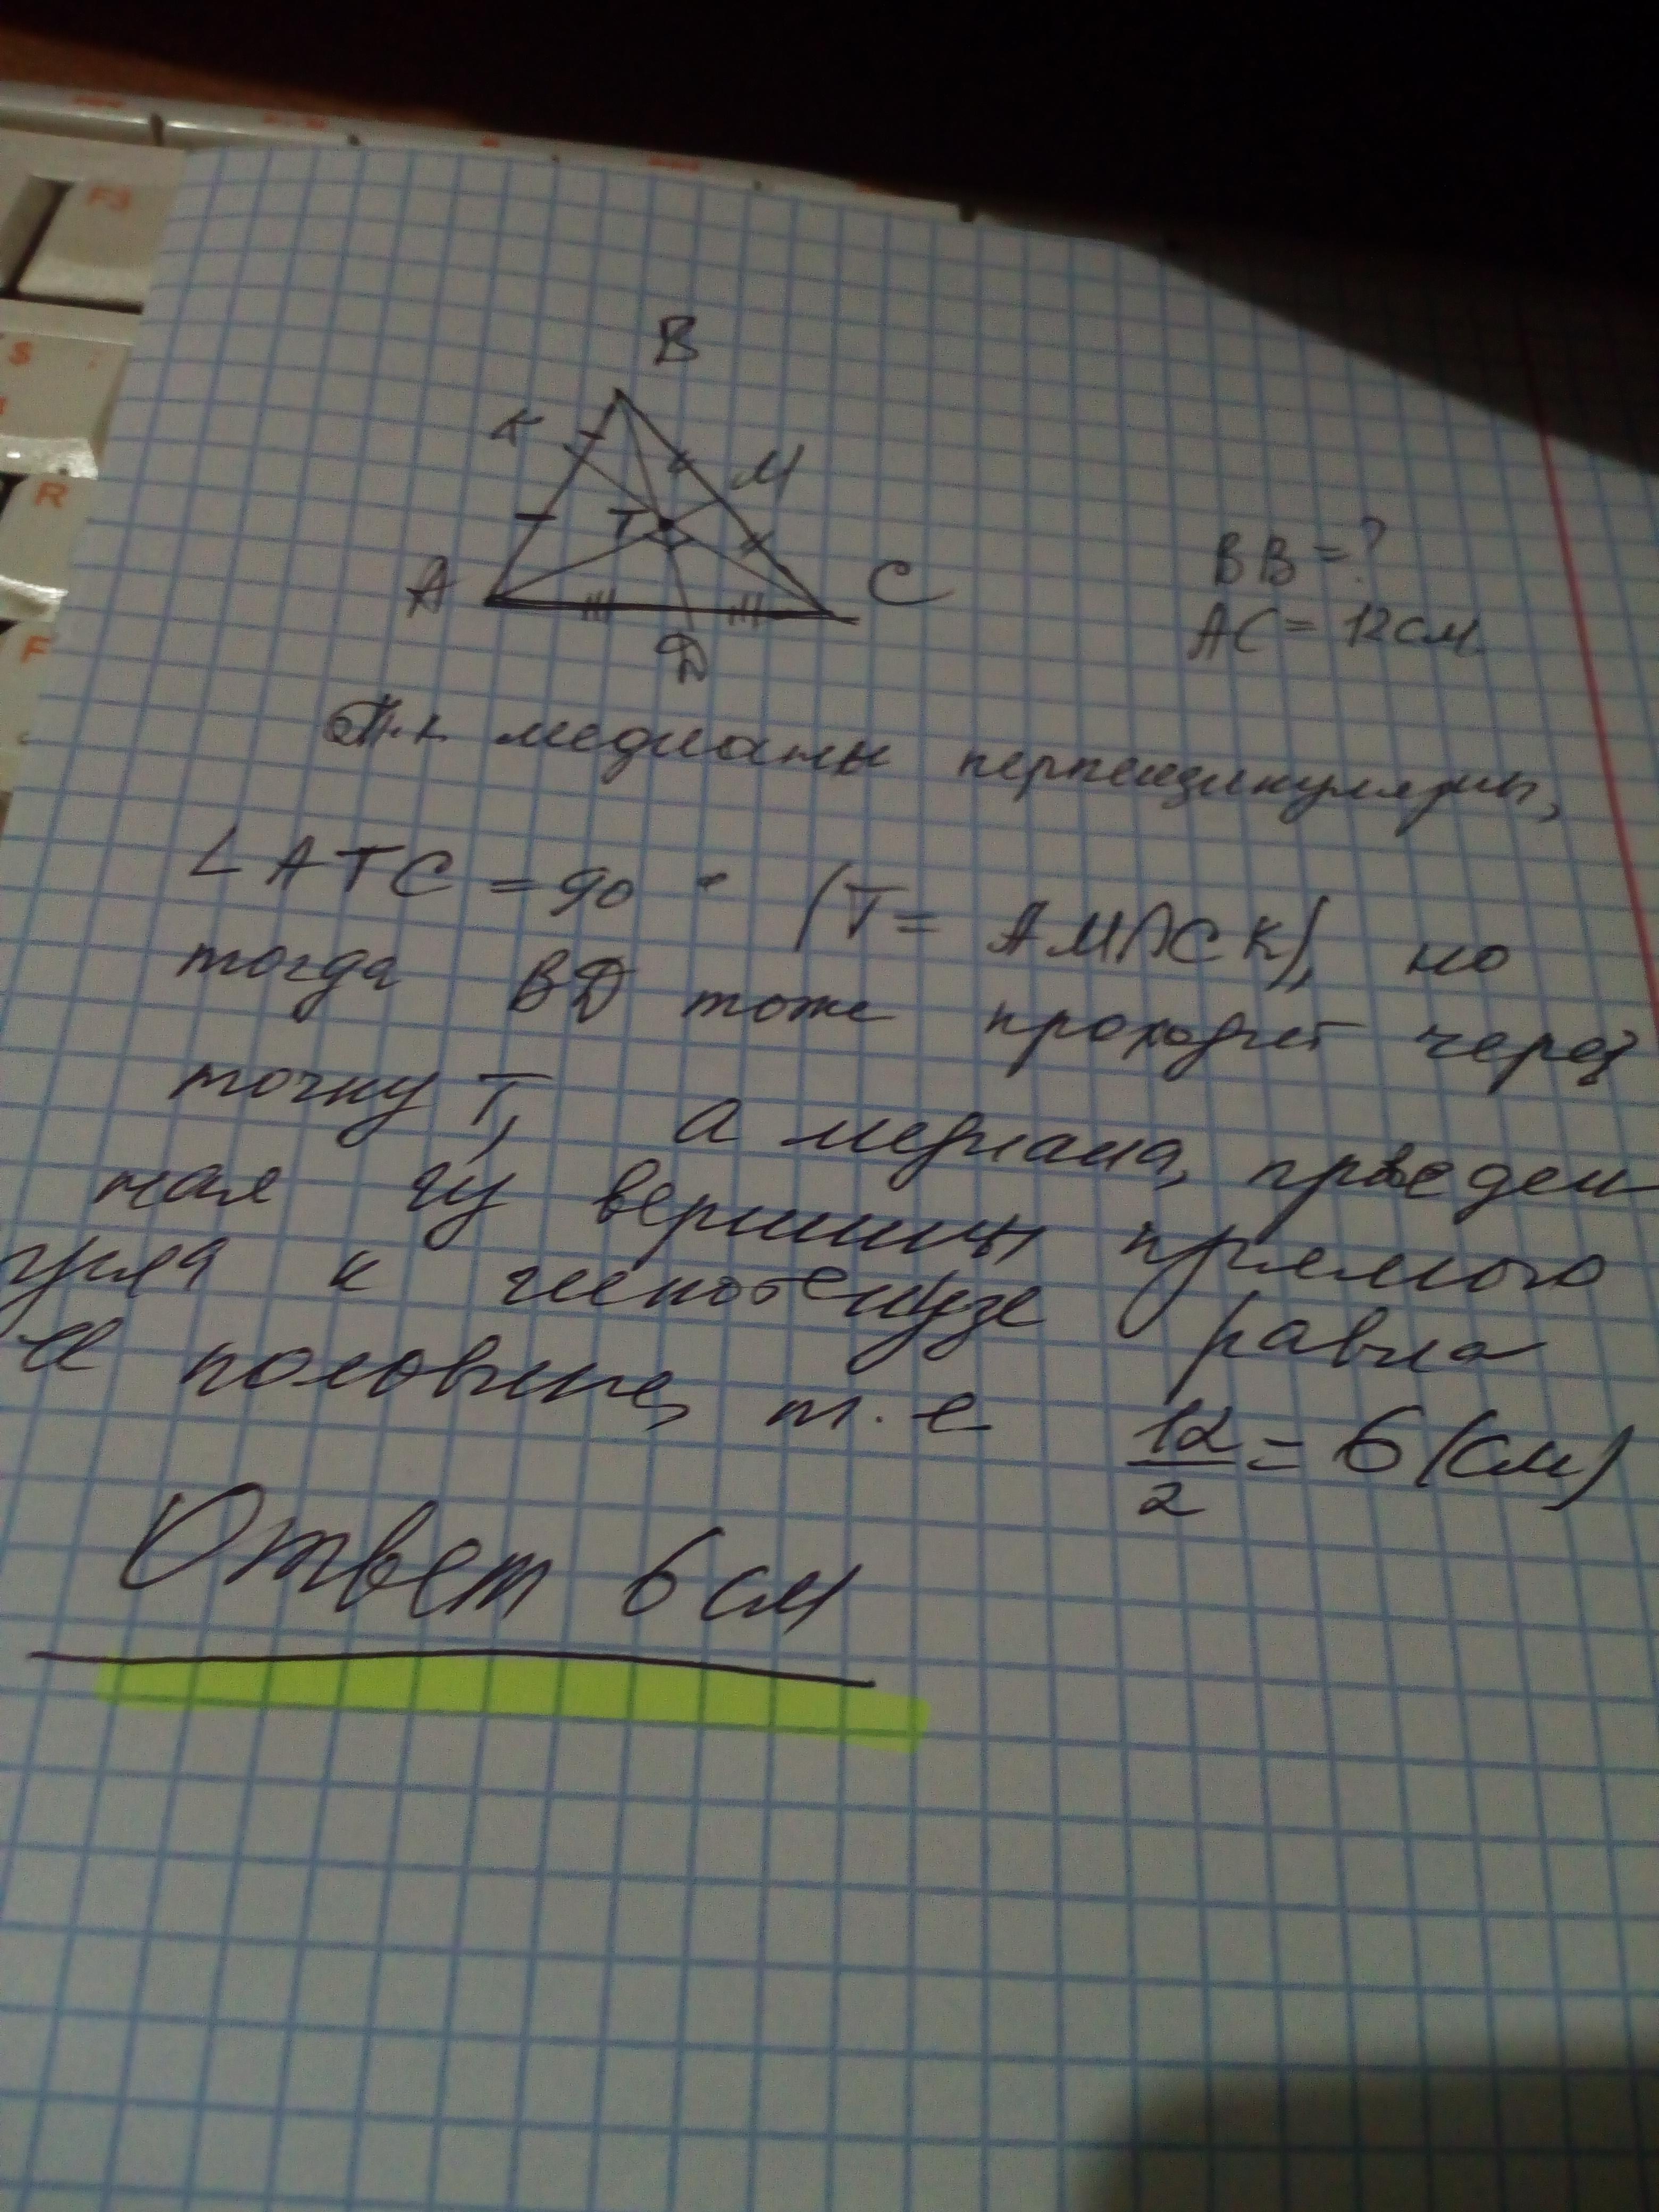 F3
S
R
F
B
K
M
T
A
C
D
BB = ?
AC = 12 см
Т.к медианы перпендикулярны,
∠ATC = 90° (T = AM∩CK), но
тогда BD тоже проходит через
точку T, а медиана, проведен
ная из вершины прямого
угла к гипотенузе равна
её половине, т.е 12/2 = 6 (см)
Ответ 6 см